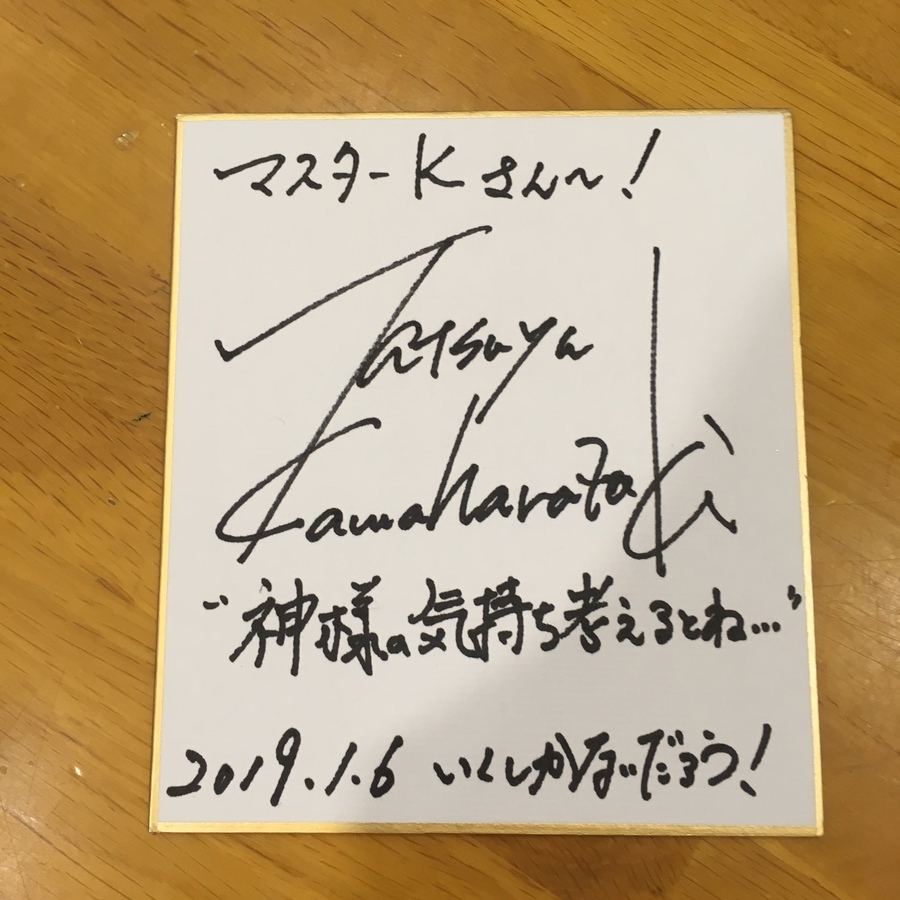 マスターKさん〜!
Tatsuya
Kawaharazaki
"神様の気持ち考えるとね..."
2019.1.6 いくしかないだろう!